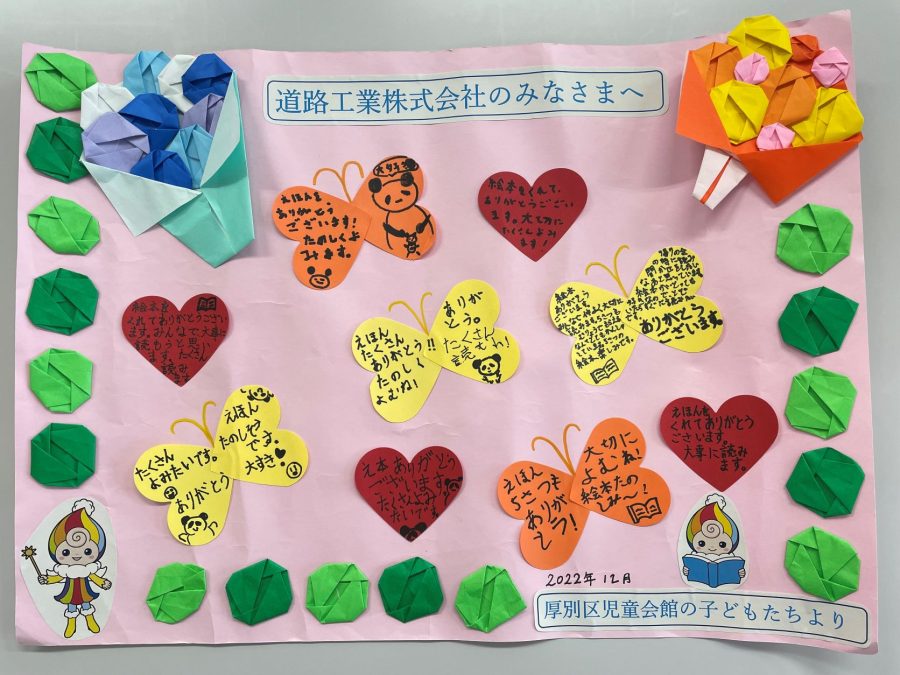 道路工業株式会社のみなさまへ
大好き
えほんを、
ありがとう
ございます!
たのしくよ
みます。
絵本をくれて、
ありがとうござい
ます。大切に
たくさんよみ
ます!
絵本を
くれてありがとうござい
ます。みんなで大事に
読もうと思い
ます。たくさん
読み
ます
えほん
たくさん
ありがとう!!
たのしく
よむね!
ありが
とう。
たくさん
読むね!
絵本
ありがとう
ございます。
絵本、楽しみです。
ありがとう
ございます。
たくさん
よみたいです。
ありがとう
えほん
たのしそう
でよ。
大すき
え本ありがとう
ございます
たくさんよみ
たいです
えほん
5さつも
ありが
とう!
大切に
よむね!
絵本たの
しみ〜!
えほんを
くれてありがとう
ございます。
大事に読み
ます。
2022年12月
厚別区児童会館の子どもたちより